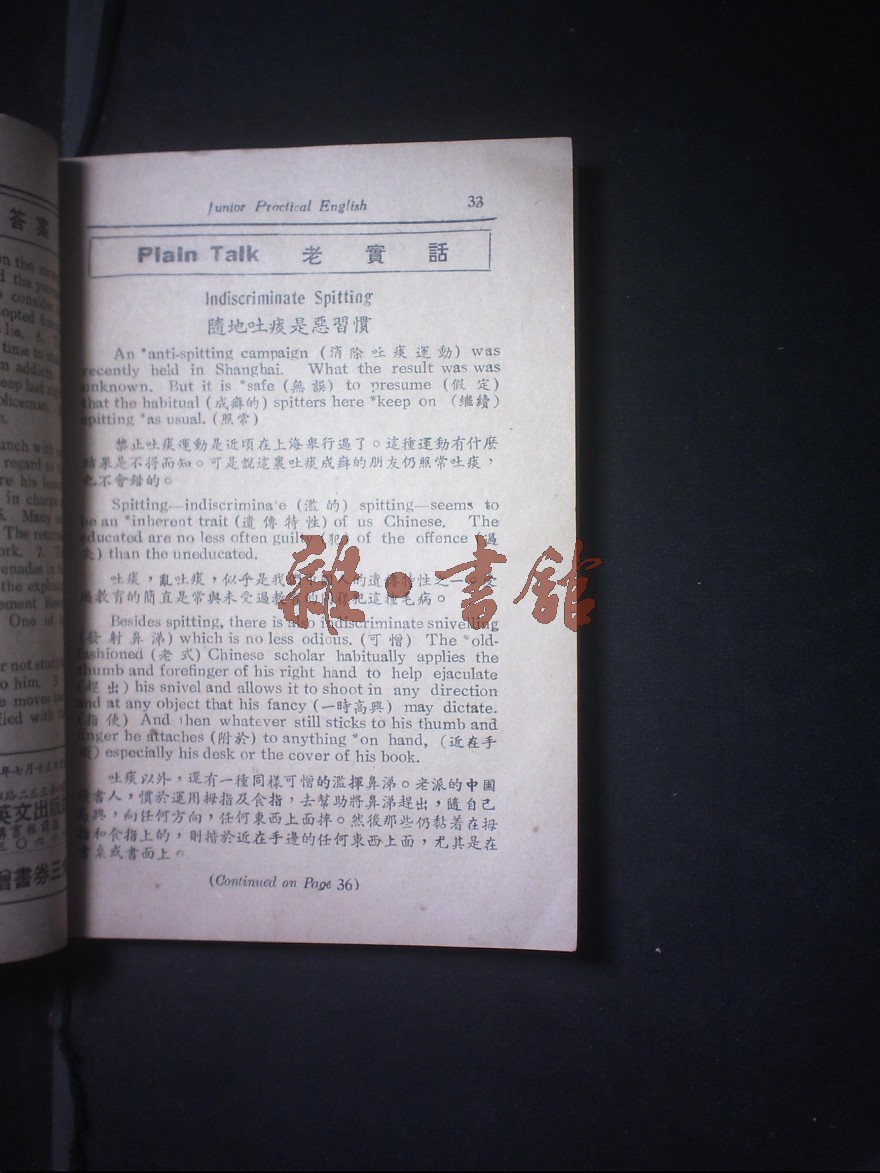 答案
on the
d the
consider
opted
lie. 6.
time to
m addicts
keep last
policeman.
unch with
regard to
re his
in charge
5. Many
The
ork. 7.
enades in
the
ement
One of
or not
o him. 3
e moves
fied with
年七月十五
英文出版
書報
三〇六
曾書券三
Junior Practical English 33
Plain Talk 老實話
Indiscriminate Spitting
隨地吐痰是惡習慣
An *anti-spitting campaign (消除吐痰運動) was
recently held in Shanghai. What the result was was
unknown. But it is *safe (無誤) to presume (假定)
that the habitual (成癖的) spitters here *keep on (繼續)
spitting *as usual. (照常)
禁止吐痰運動是近頃在上海舉行過了。這種運動有什麼
結果是不得而知。可是說這裏吐痰成癖的朋友仍照常吐痰，
也不會錯的。
Spitting—indiscriminate (濫的) spitting—seems to
be an *inherent trait (遺傳特性) of us Chinese. The
educated are no less often guilty (犯) of the offence (過
失) than the uneducated.
吐痰，亂吐痰，似乎是我們中國人的遺傳特性之一。受
過教育的簡直是常與未受過教育的同樣犯這種毛病。
Besides spitting, there is also indiscriminate snivelling
(發射鼻涕) which is no less odious. (可憎) The *old-
fashioned (老式) Chinese scholar habitually applies the
thumb and forefinger of his right hand to help ejaculate
(趕出) his snivel and allows it to shoot in any direction
and at any object that his fancy (一時高興) may dictate.
(指使) And then whatever still sticks to his thumb and
finger he attaches (附於) to anything *on hand, (近在手
頭) especially his desk or the cover of his book.
吐痰以外，還有一種同樣可憎的濫揮鼻涕。老派的中國
讀書人，慣於運用拇指及食指，去幫助將鼻涕趕出，隨自己
高興，向任何方向，任何東西上面摔。然後那些仍黏着在拇
指和食指上的，則揩於近在手邊的任何東西上面，尤其是在
書桌或書面上。
(Continued on Page 36)
雜·書館